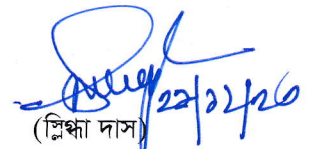 ২২/১২/২৩
(স্নিগ্ধা দাস)